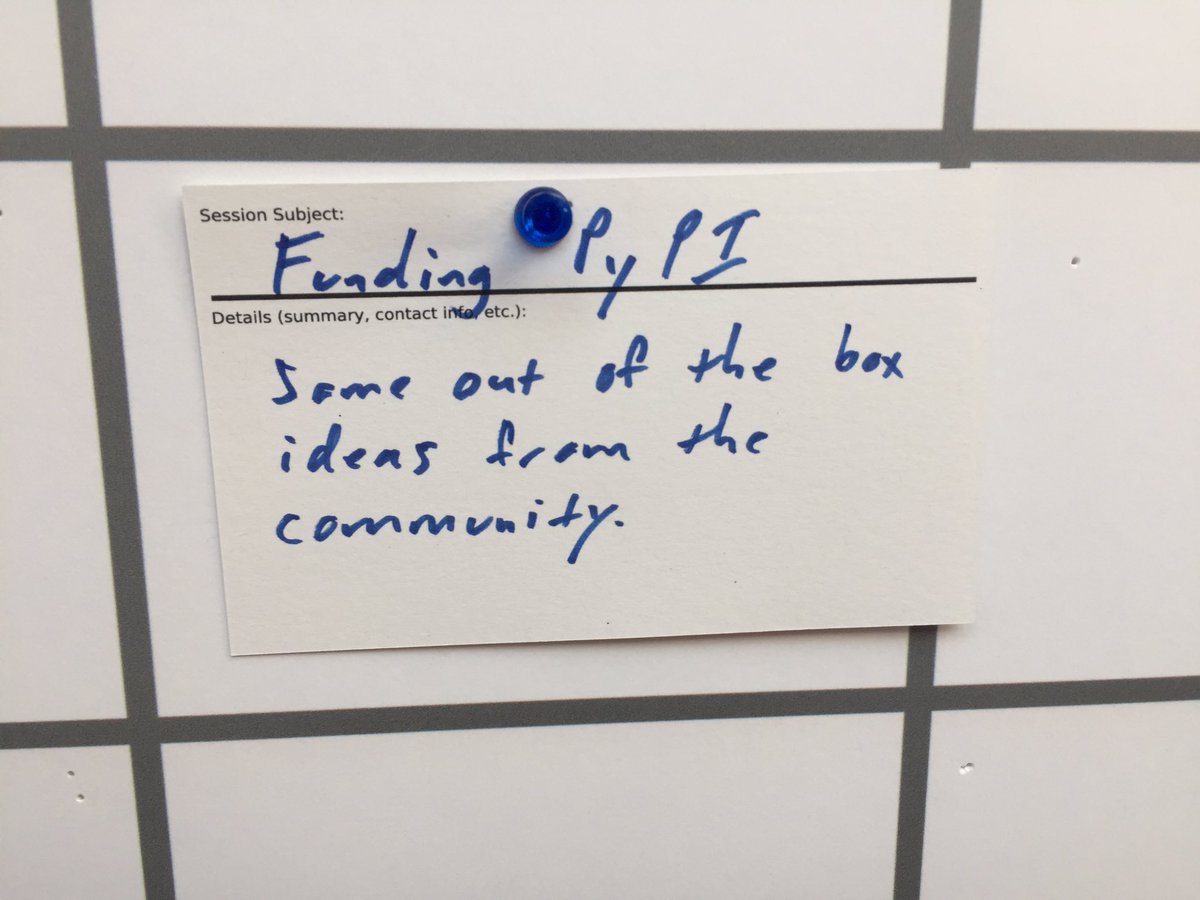 Session Subject:
Funding PyPI
Details (summary, contact info, etc.):
Some out of the box
ideas from the
community.